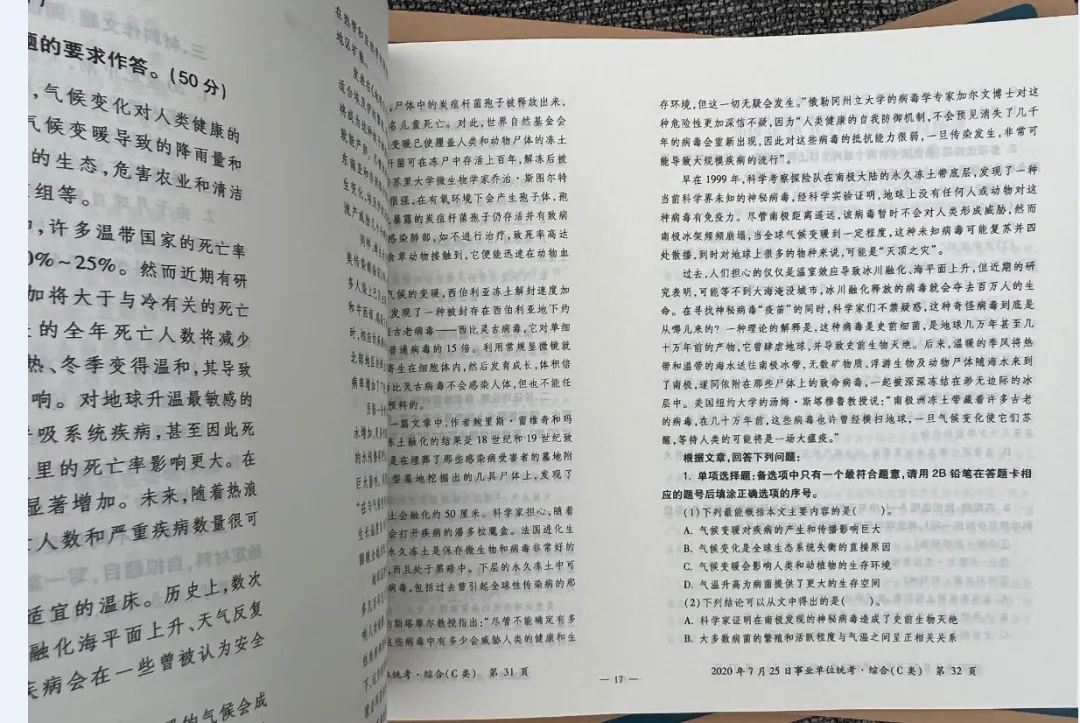 题的要求作答。(50分)
,气候变化对人类健康的
气候变暖导致的降雨量和
的生态,危害农业和清洁
组等。
,许多温带国家的死亡率
0%~25%。然而近期有研
加将大于与冷有关的死亡
的全年死亡人数将减少
热、冬季变得温和,其导致
响。对地球升温最敏感的
呼吸系统疾病,甚至因此死
里的死亡率影响更大。在
显著增加。未来,随着热浪
亡人数和严重疾病数量很可
适宜的温床。历史上,数次
融化海平面上升、天气反复
疾病会在一些曾被认为安全
的气候会成
地区扩散。
,尸体中的炭疽杆菌孢子被释放出来,
名儿童死亡。对此,世界自然基金会
变暖已使覆盖人类和动物尸体的冻土
杆菌可在冻尸中存活上百年,解冻后被
苏里大学微生物学家乔治·斯图尔特
很强,在有氧环境下会产生孢子体,孢
暴露的炭疽杆菌孢子仍存活并有致病
感染肺部,如不进行治疗,致死率高达
食草动物接触到,它便能迅速在动物血
气候的变暖,西伯利亚冻土解封速度加
发现了一种被封存在西伯利亚地下约
古老病毒——西比灵古病毒,它对单细
普通病毒的15倍。利用常规显微镜就
寄生在细胞体内,然后发育成长,体积倍
比灵古病毒不会感染人体,但也不能任
预料的。
一篇文章中,作者鲍里斯·雷维奇和玛
冻土融化的结果是18世纪和19世纪致
是在埋葬了那些感染病受害者的墓地附
型墓地挖掘出的几具尸体上,发现了
土会融化约50厘米。科学家担心,随着
会打开疾病的潘多拉魔盒。法国进化生
永久冻土是保存微生物和病毒非常好的
,而且处于黑暗中。下层的永久冻土中可
病毒,包括过去曾引起全球性传染病的那
斯塔摩尔教授指出:“尽管不能确定有多
这些病毒中有多少会威胁人类的健康和生
统考·综合(C类) 第31页
— 17 —
存环境,但这一切无疑会发生。”俄勒冈州立大学的病毒学专家加尔文博士对这
种危险性更加深信不疑,因为“人类健康的自我防御机制,不会预见消失了几千
年的病毒会重新出现,因此对这些病毒的抵抗能力很弱,一旦传染发生,非常可
能导致大规模疾病的流行”。
早在1999年,科学考察探险队在南极大陆的永久冻土带底层,发现了一种
当前科学界未知的神秘病毒,经科学实验证明,地球上没有任何人或动物对这
种病毒有免疫力。尽管南极距离遥远,该病毒暂时不会对人类形成威胁,然而
南极冰架频频崩塌,当全球气候变暖到一定程度,这种未知病毒可能复苏并四
处散播,到时对地球上很多的物种来说,可能是“灭顶之灾”。
过去,人们担心的仅仅是温室效应导致冰川融化、海平面上升,但近期的研
究表明,可能等不到大海淹没城市,冰川融化释放的病毒就会夺去百万人的生
命。在寻找神秘病毒“疫苗”的同时,科学家们不禁疑惑,这种奇怪病毒到底是
从哪儿来的? 一种理论的解释是,这种病毒是史前细菌,是地球几万年甚至几
十万年前的产物,它曾肆虐地球,并导致史前生物灭绝。后来,温暖的季风将热
带和温带的海水送往南极冰带,无数矿物质、浮游生物及动物尸体随海水来到
了南极,遂同依附在那些尸体上的致命病毒,一起被深深冻结在渺无边际的冰
层中。美国纽约大学的汤姆·斯塔穆鲁教授说:“南极洲冻土带藏着许多古老
的病毒,在几十万年前,这些病毒也许曾经横扫地球,一旦气候变化使它们苏
醒,等待人类的可能将是一场大瘟疫。”
根据文章,回答下列问题:
1. 单项选择题:备选项中只有一个最符合题意,请用2B铅笔在答题卡相
应的题号后填涂正确选项的序号。
(1)下列最能概括本文主要内容的是( )。
A. 气候变暖对疾病的产生和传播影响巨大
B. 气候变化是全球生态系统失衡的直接原因
C. 气候变暖会影响人类和动植物的生存环境
D. 气温升高为病菌提供了更大的生存空间
(2)下列结论可以从文中得出的是( )。
A. 科学家证明在南极发现的神秘病毒造成了史前生物灭绝
B. 大多数病菌的繁殖和活跃程度与气温之间呈正相关关系
2020年7月25日事业单位统考·综合(C类) 第32页